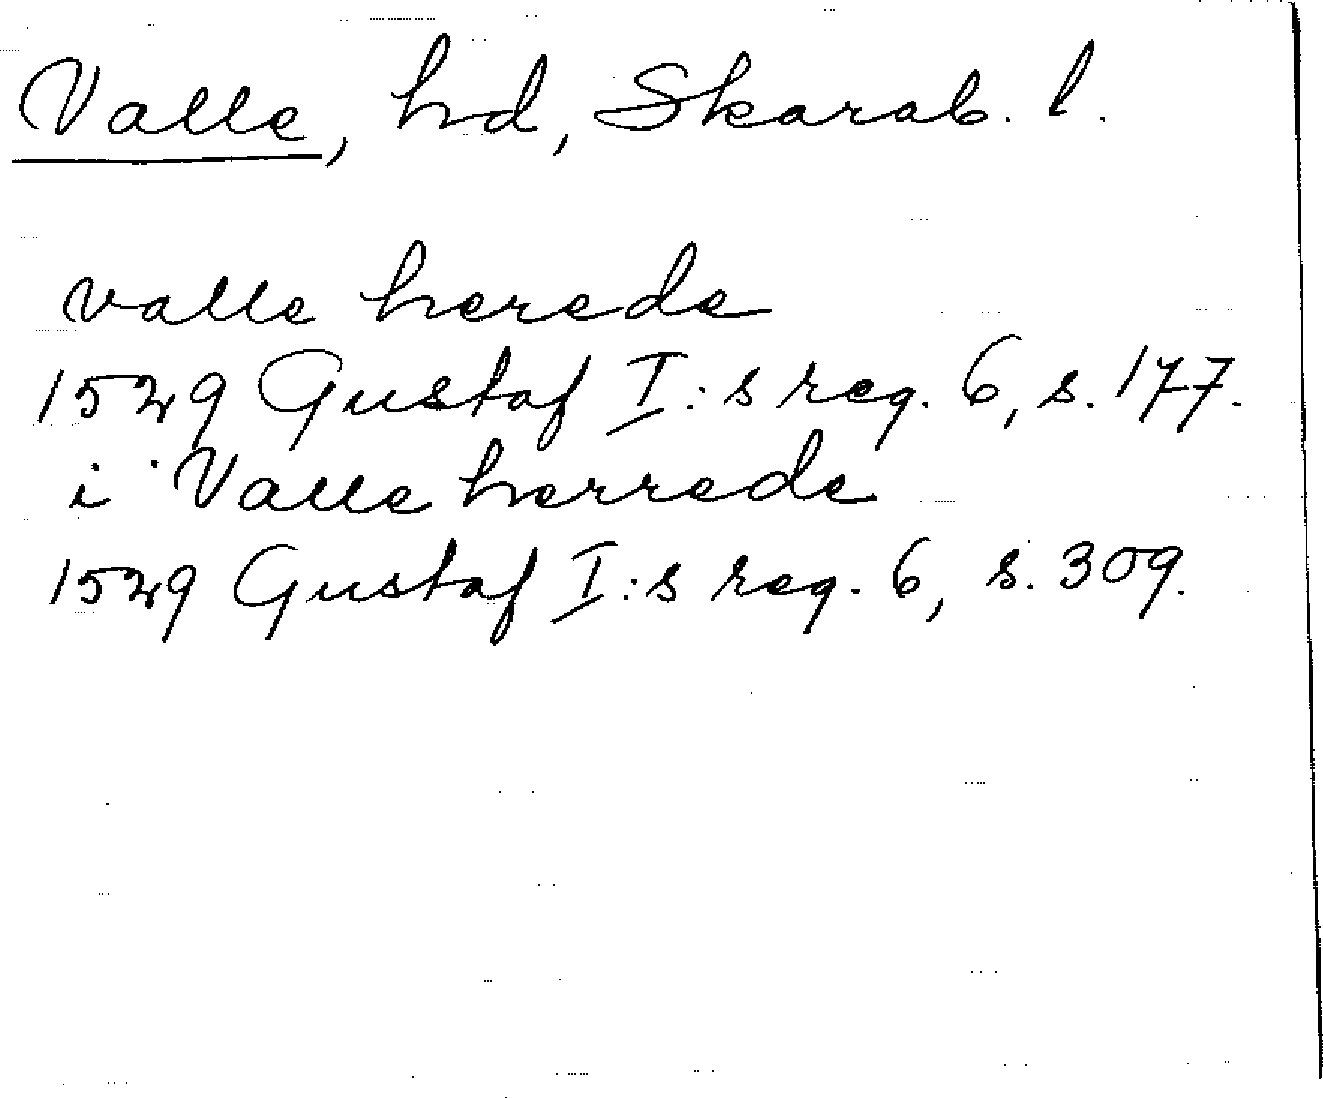 Valle, hd, Skarab. l.
valle herede
1529 Gustaf I:s reg. 6, s. 177.
i Valle herrede
1529 Gustaf I:s reg. 6, s. 309.